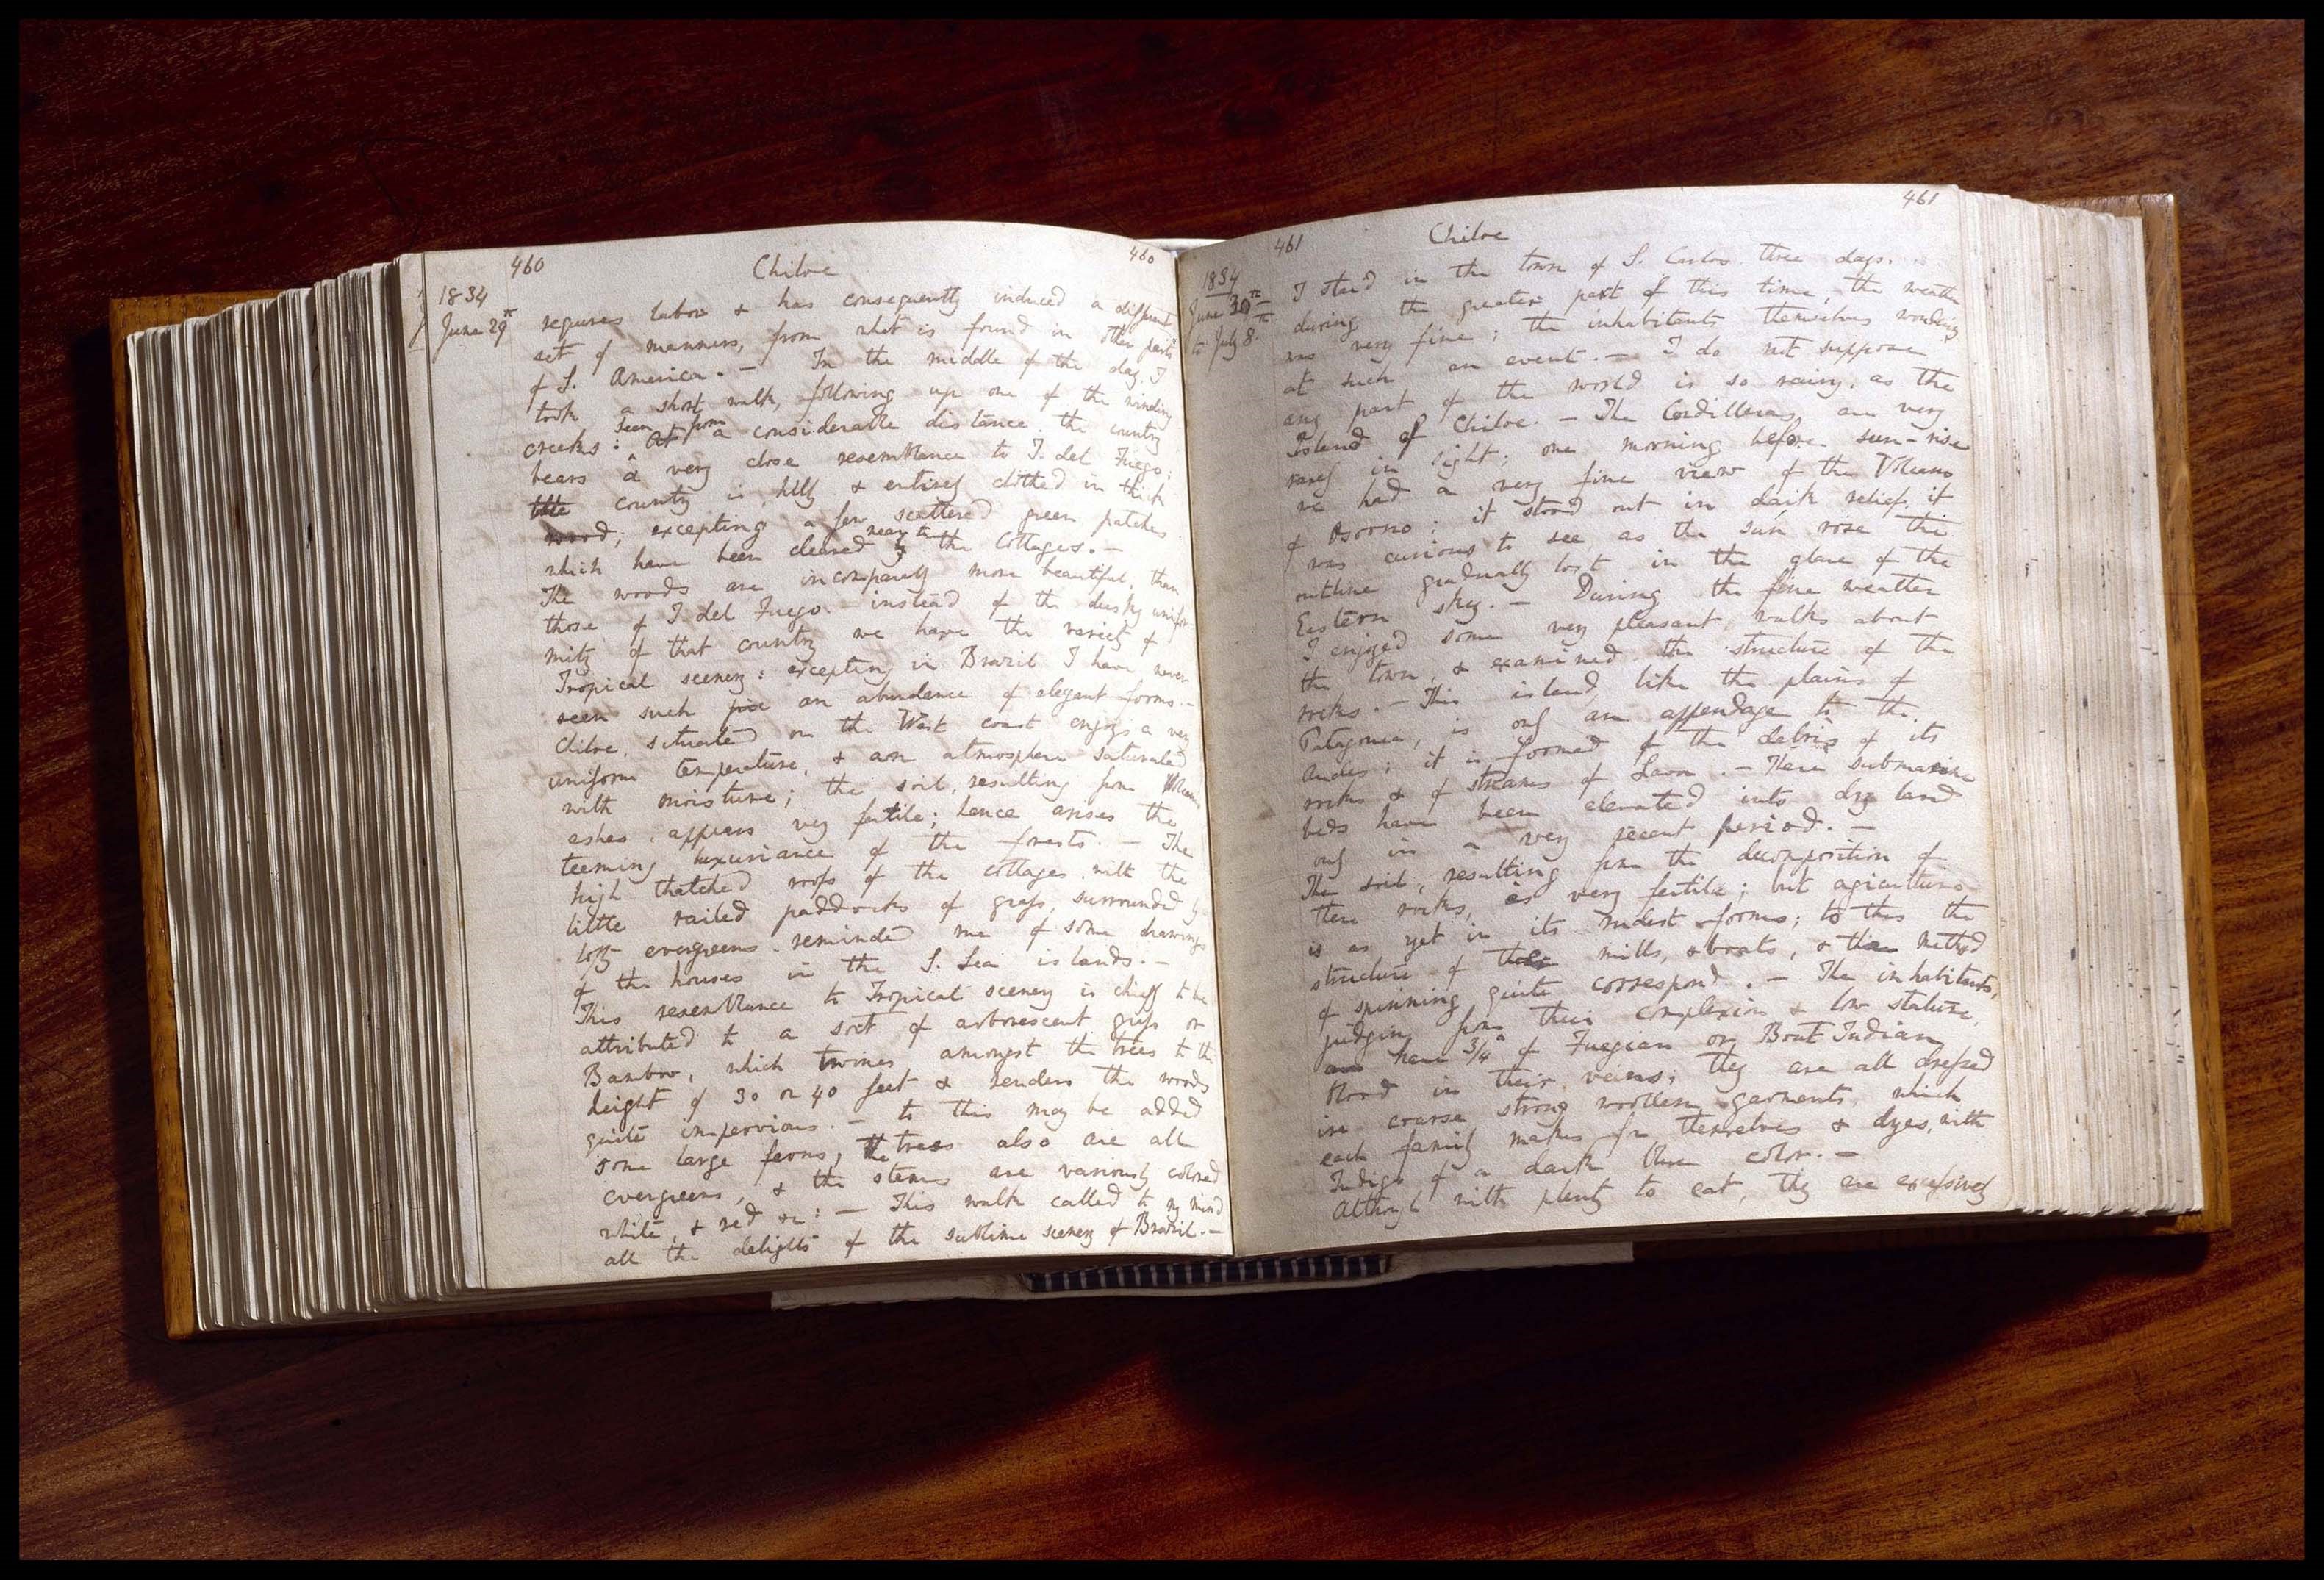 460 Chiloe 460
1834
June 29th
requires labor & has consequently induced a different
set of manners, from what is found in other parts
of S. America. — In the middle of the day I
took a short walk, following up one of the winding
creeks: At seen from a considerable distance the country
bears a very close resemblance to T. del Fuego;
the country is hilly & entirely clothed in thick
wood, excepting a few scattered green patches
which have been cleared by near to the cottages. —
The woods are incomparably more beautiful, than
those of T. del Fuego, instead of the dusky unifor-
mity of that country we have the variety of
Tropical scenery: excepting in Brazil I have never
seen such an abundance of elegant forms. —
Chiloe, situated on the West coast enjoys a very
uniform temperature, & an atmosphere saturated
with moisture; the soil, resulting from Volcanic
ashes, appears very fertile; hence arises the
teeming luxuriance of the forests. — The
high thatched roofs of the cottages with the
little railed paddocks of grass, surrounded by
lofty evergreens reminded me of some drawings
of the houses in the S. Sea islands. —
This resemblance to Tropical scenery is chiefly to be
attributed to a sort of arborescent grass or
Bamboo, which twines amongst the trees to the
height of 30 or 40 feet & renders the woods
quite impervious. — to this may be added
some large ferns; the trees also are all
evergreens, & the stems are variously colored
white, & red &c: — This walk called to my mind
all the delights of the sublime scenery of Brazil. —
461 Chiloe 461
1834
June 30th
to July 8th
I staid in the town of S. Carlos three days.
during the greater part of this time, the weather
was very fine; the inhabitants themselves wondering
at such an event. — I do not suppose
any part of the world is so rainy as the
Island of Chiloe. — The Cordilleras are very
rarely in sight; one morning before sun-rise
we had a very fine view of the Volcano
of Osorno; it stood out in dark relief; it
was curious to see as the sun rose the
outline gradually lost in the glare of the
Eastern sky. — During the fine weather
I enjoyed some very pleasant walks about
the town, & examined the structure of the
rocks. — This island, like the plains of
Patagonia, is only an appendage to the
Andes; it is formed of the debris of its
rocks & of streams of Lava. — These submarine
beds have been elevated into dry land
only in a very recent period. —
The soil, resulting from the decomposition of
these rocks, is very fertile; but agriculture
is as yet in its rudest forms; to this the
structure of their mills, & boats, & their method
of spinning quite correspond. — The inhabitants,
judging from their complexion & low stature,
have 3/4 of Fuegian or Boat Indian
blood in their veins; they are all dressed
in coarse strong woollen garments, which
each family makes for themselves & dyes, with
Indigo of a dark blue color. —
Although with plenty to eat, they are excessively